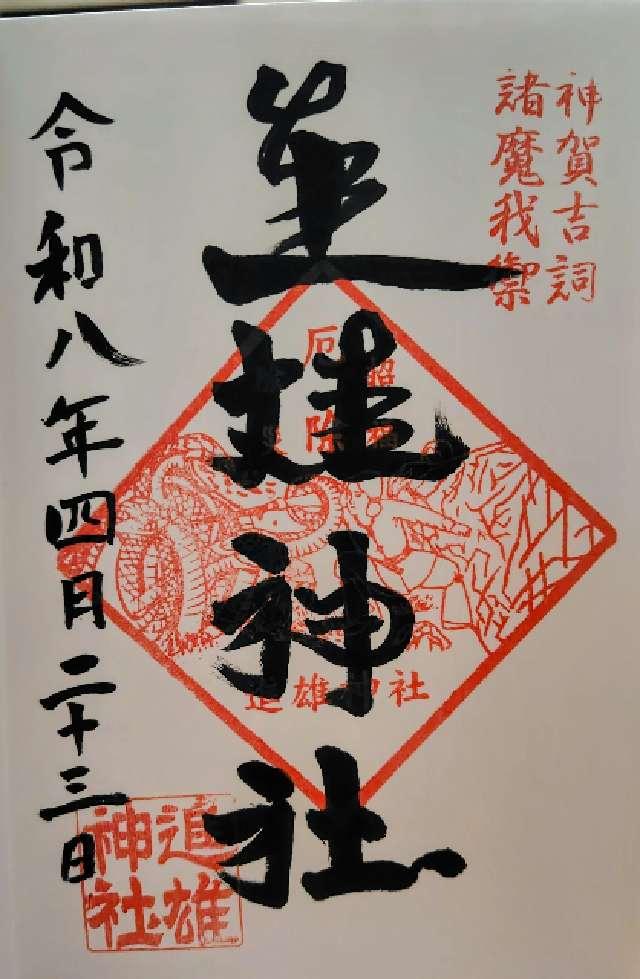 神賀吉詞
諸魔我禦
進雄神社
厄除
進雄神社
令和八年四月二十三日
進雄
神社